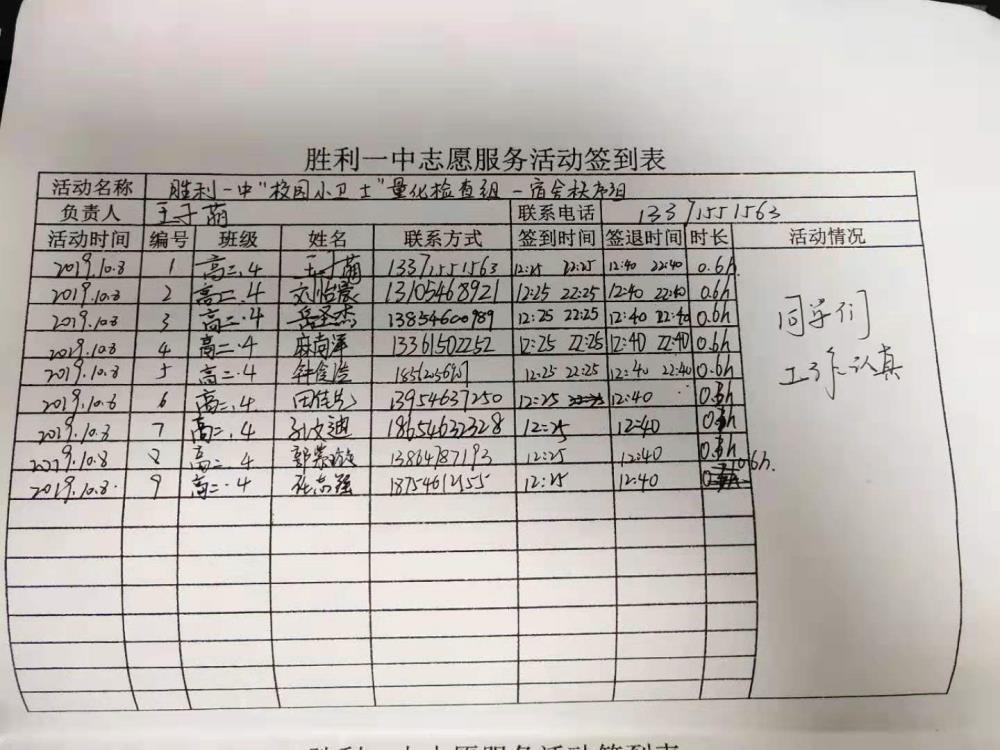 胜利一中志愿服务活动签到表
活动名称 胜利一中“校园小卫士”量化检查组-宿舍秩序组
负责人 王子萌 联系电话 13371551563
活动时间 编号 班级 姓名 联系方式 签到时间 签退时间 时长 活动情况
2019.10.8 1 高二.4 王子萌 13371551563 12:25 22:25 12:40 22:40 0.6h
2019.10.8 2 高二.4 刘怡宸 13105468921 12:25 22:25 12:40 22:40 0.6h
2019.10.8 3 高二.4 岳圣杰 13854600989 12:25 22:25 12:40 22:40 0.6h
2019.10.8 4 高二.4 麻尚泽 13361502252 12:25 22:25 12:40 22:40 0.6h
2019.10.8 5 高二.4 12:25 22:25 12:40 22:40 0.6h
2019.10.8 6 高二.4 13954637250 12:25 12:40
2019.10.8 7 高二.4 孔文迪 18654632328 12:25 12:40
2019.10.8 8 高二.4 13864787193 12:25 12:40
2019.10.8 9 高二.4 张志强 18754612155 12:25 12:40 0.6h
同学们
工作认真
胜利一中志愿服务活动签到表